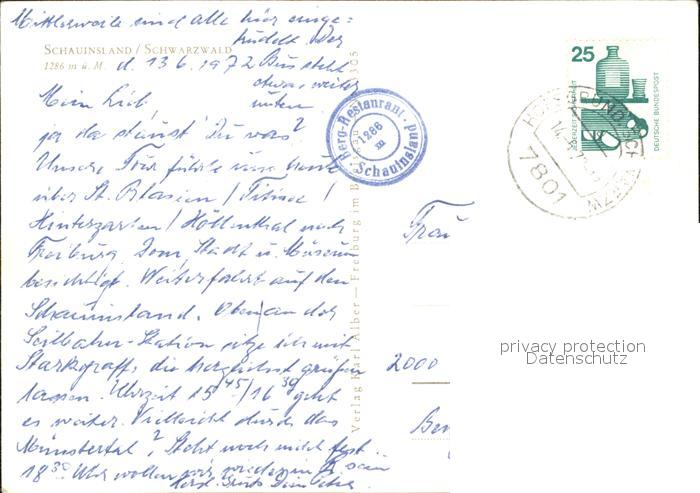 Mittlerweile sind alle hier einge=
trudelt. Der
SCHAUINSLAND / SCHWARZWALD
1286 m ü. M.
d. 13 6. 1972 Bus steht
etwas weiter
unten
Mein Lieb,
ja da staunst Du was?
Unsere Tour führte uns heute
über St. Blasien / Titisee /
Hinterzarten / Höllenthal nach
Freiburg. Dom, Stadt u. Museum
besichtigt. Weiterfahrt auf den
Schauinsland. Oben an der
Seilbahn-Station sitze ich mit
die herzlichst grüßen
lassen. Uhrzeit 15 45/16 30 geht
es weiter. Vielleicht durch das
Münstertal? Steht noch nicht fest.
18 30 Uhr wollen wir wieder in B. sein
Herzl.
Berg-Restaurant
1286
m
Schauinsland
Verlag Karl Alber — Freiburg im
25
JEDERZEIT SICHERHEIT
DEUTSCHE BUNDESPOST
7801
Frau
2000
privacy protection
Datenschutz